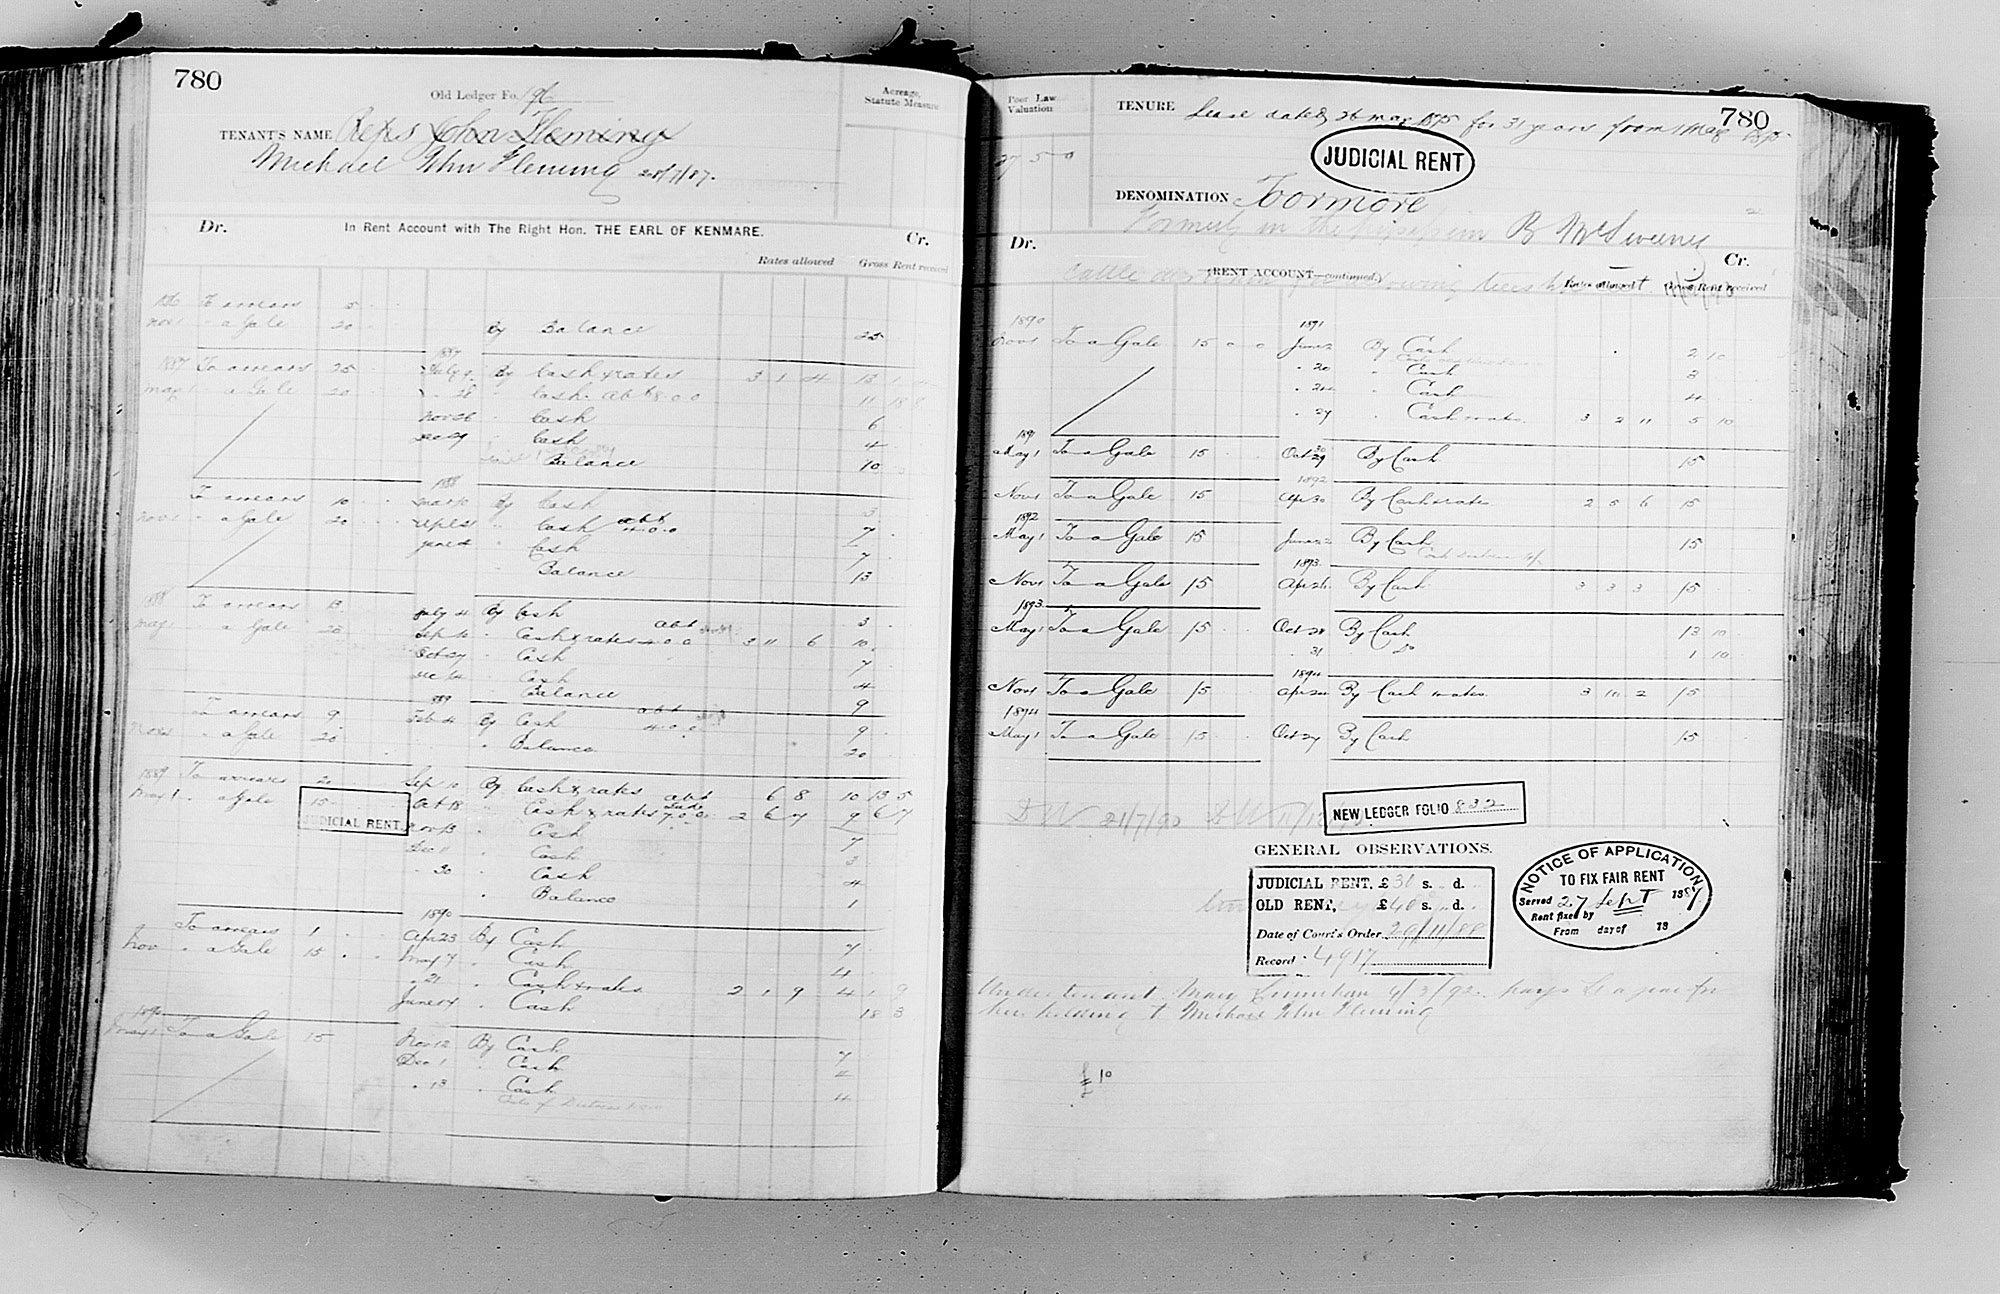 780
Old Ledger Fo. 96
Acreage, Statute Measure
TENANT'S NAME Reps John Fleming
Michael John Fleming 28/7/87.
Dr. In Rent Account with The Right Hon. THE EARL OF KENMARE. Cr.
Rates allowed Gross Rent received
To arrears 5
Nov 1 " a Gale 20 By Balance 25
1887
1887 To arrears 25 July 9 By Cash & rates 3 1 4 13 1 4
May 1 " a Gale 20 " 28 " Cash abt 8.0.0 11 18 8
Nov 26 " Cash 6
Dec 29 " Cash 4
Balance 10
1888
To arrears 10 Mar 10 By Cash 3
Nov 1 " a Gale 20 " Cash abt 4.0.0 7
June 4 " Cash 7
Balance 13
1888 To arrears 13 July 4 By Cash 3
May 1 " a Gale 20 Sep 10 " Cash & rates abt 4.0.0 3 11 6 10
Oct 27 " Cash 7
" Cash 4
Balance 9
1889
To arrears 9 Feb 4 By Cash abt 4.0.0 9
Nov 1 " a Gale 20 " Balance 20
1889 To arrears 20 Sep 10 By Cash & rates 6 8 10 13 5
May 1 " a Gale 15 Oct 18 " Cash & rates abt 7.0.0 2 6 7 9 6 7
JUDICIAL RENT. Nov 13 " Cash 7
Dec 11 " Cash 3
" 30 " Cash 4
" Balance 1
1890
To arrears 1 Apr 23 By Cash 7
Nov " a Gale 15 May 7 " Cash 4
" 21 " Cash & rates 2 1 9 4 1 9
June 14 " Cash 18 3
1890
May 1 To a Gale 15 Nov 12 By Cash 7
Dec 1 " Cash 4
" 13 " Cash 4
780
Poor Law Valuation
TENURE Lease dated 26 May 1875 for 31 years from 1 May 1875
27 5 0
JUDICIAL RENT
DENOMINATION Tormore
Formerly in the possession B McSweeney
Dr. Cr.
RENT ACCOUNT—continued. Rates allowed Gross Rent received
1890 1891
Nov 1 To a Gale 15 0 0 June 2 By Cash 2 10
" 20 " Cash 3
" 24 " Cash 4
" 27 " Cash & rates 3 2 11 5 10
1891
May 1 To a Gale 15 Oct 29 By Cash 15
1892
Nov 1 To a Gale 15 Apr 30 By Cash & rates 2 5 6 15
1892
May 1 To a Gale 15 June 22 By Cash 15
1893
Nov 1 To a Gale 15 Apr 26 By Cash 3 3 3 15
1893
May 1 To a Gale 15 Oct 28 By Cash 13 10
" 31 " Do 1 10
1894
Nov 1 To a Gale 15 Apr 24 By Cash & rates 3 10 2 15
1894
May 1 To a Gale 15 Oct 27 By Cash 15
DW 21/7/90 DW
NEW LEDGER FOLIO 832
GENERAL OBSERVATIONS.
JUDICIAL RENT, £30 s. d.
OLD RENT, £40 s. d.
Date of Court's Order 29/11/88
Record 4917
NOTICE OF APPLICATION
TO FIX FAIR RENT
Served 27 Sept 1887
Rent fixed by
From day of 18
Under tenant Mary 4/3/92 pays £ a year for
her holding to Michael John Fleming
£10